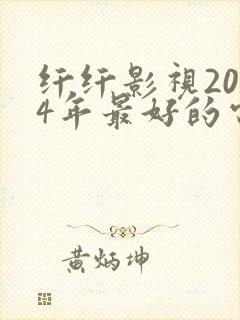 纤纤影视20
4年最好的
黄炳坤